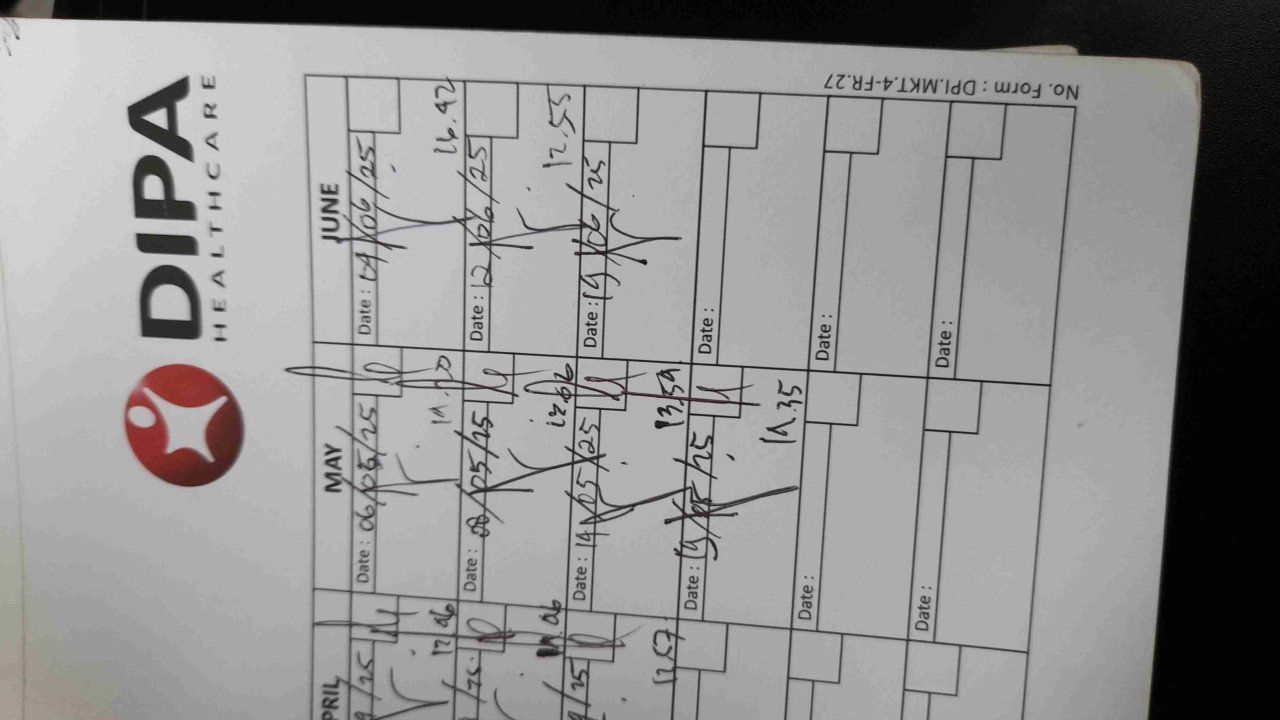 DIPA
HEALTHCARE
PRIL
MAY
JUNE
/25
Date : 06/05/25
Date : 04/06/25
12.06
16.42
/25
Date : 08/05/25
Date : 12/06/25
12.55
/25
Date : 14/05/25
Date : 19/06/25
12.57
13.59
Date : 19/05/25
Date :
14.35
Date :
Date :
Date :
Date :
No. Form : DPI.MKT.4-FR.27